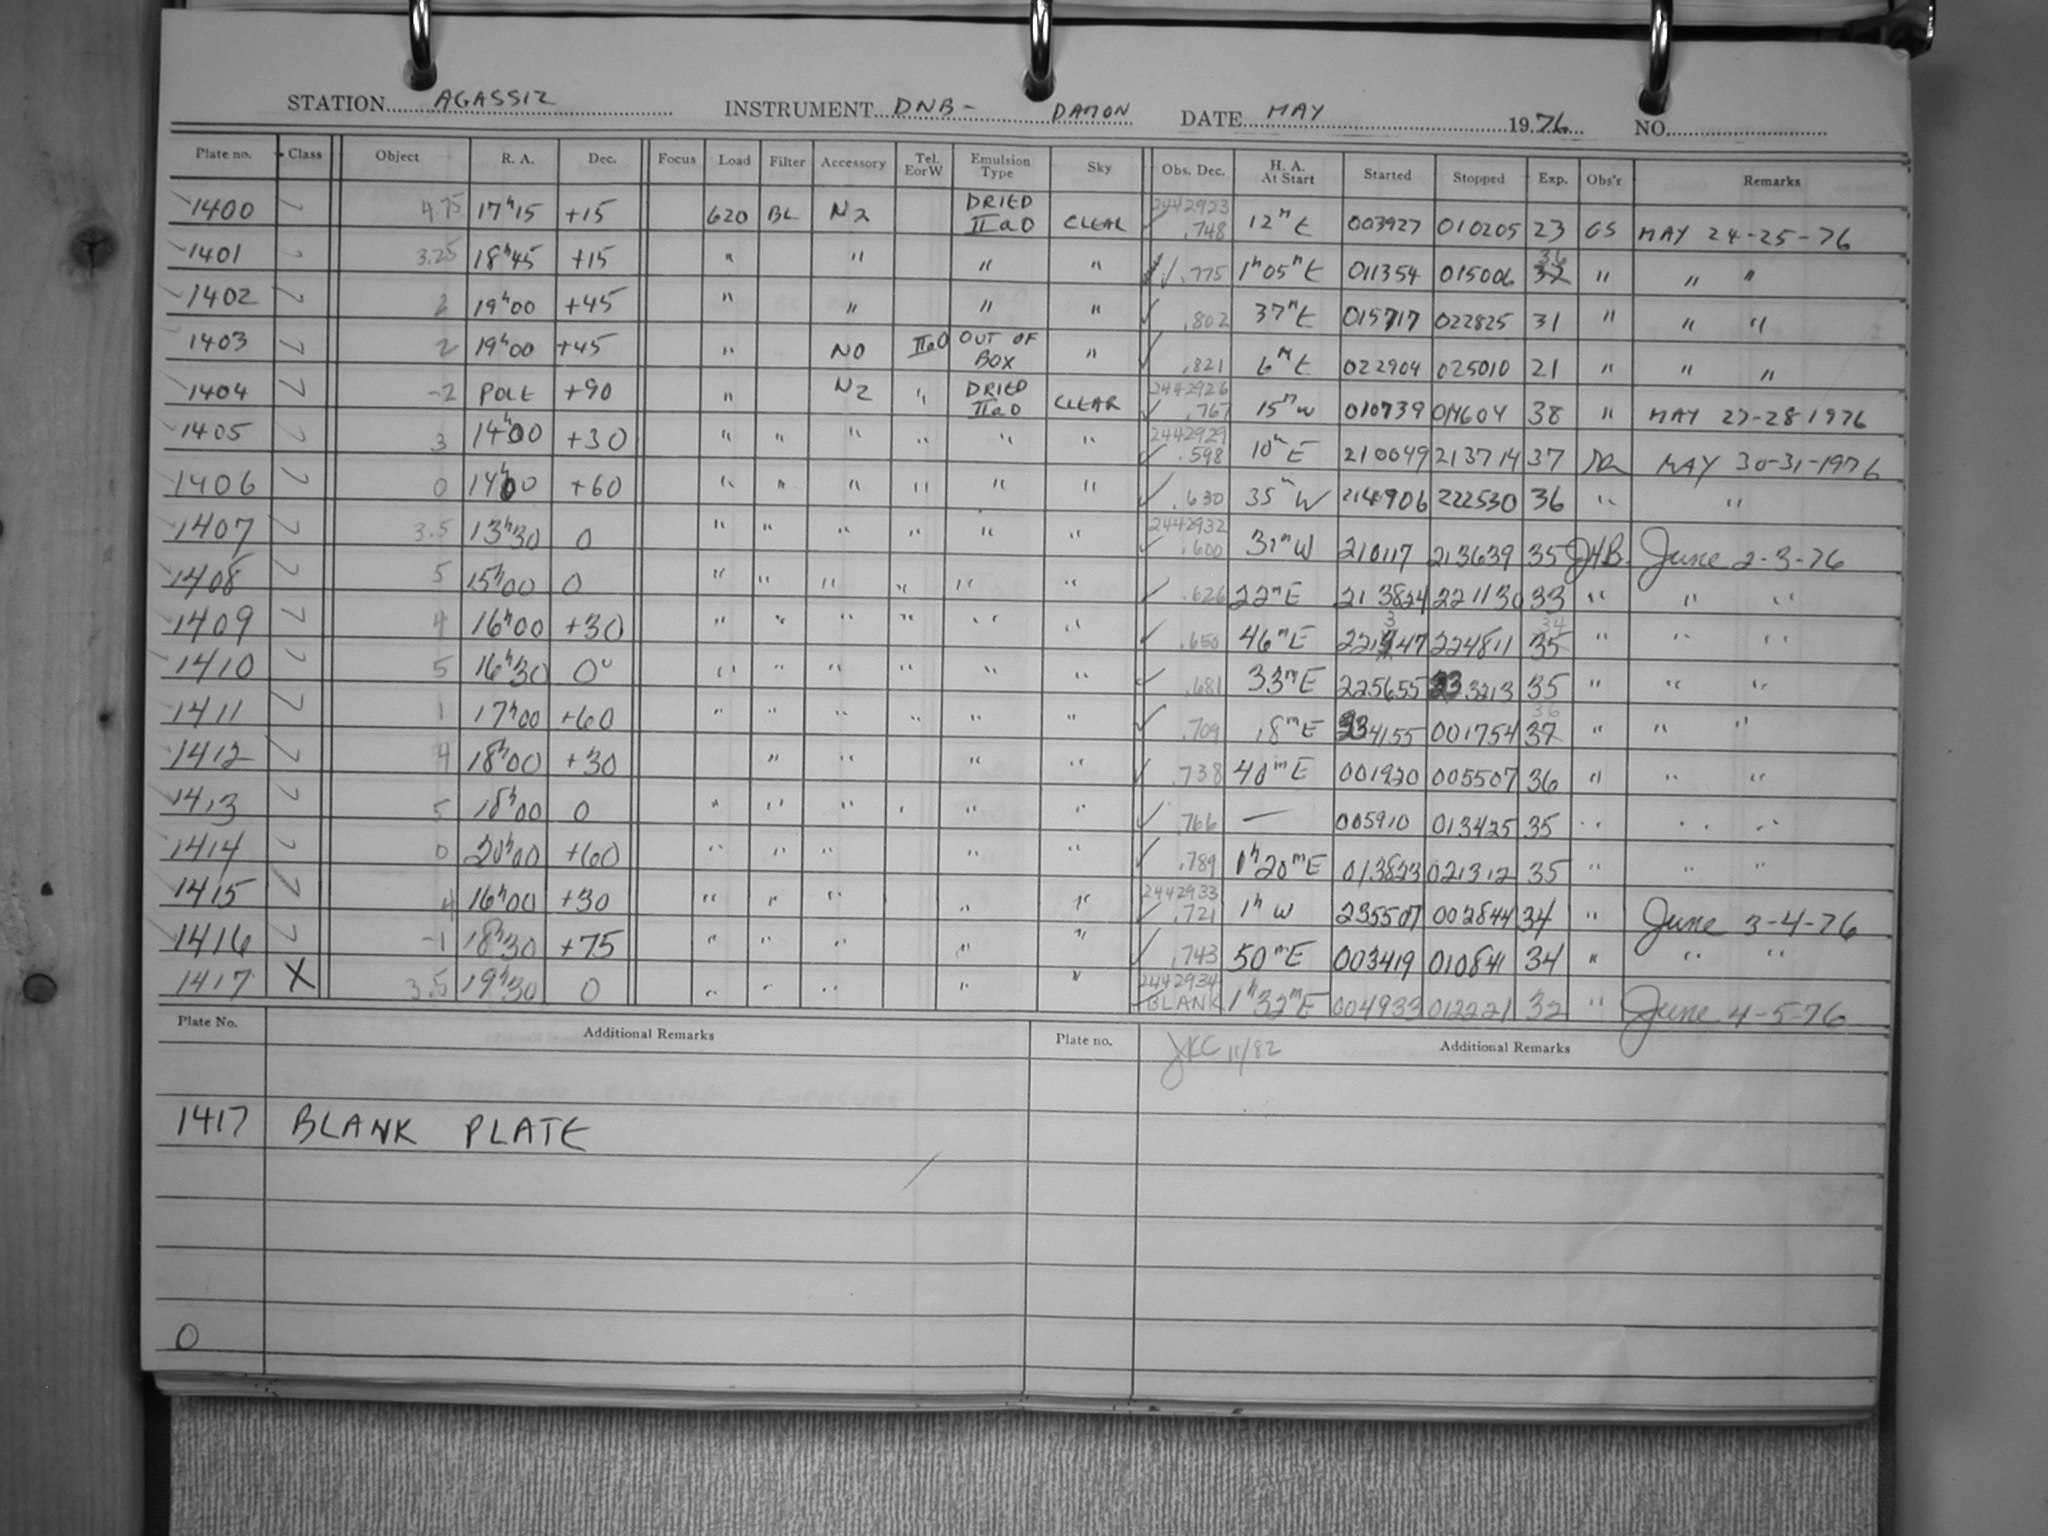 STATION AGASSIZ INSTRUMENT DNB - DAMON DATE MAY 1976 NO.
Plate no. Class Object R. A. Dec. Focus Load Filter Accessory Tel. E or W Emulsion Type Sky Obs. Dec. H. A. At Start Started Stopped Exp. Obs'r Remarks
1400 4.75 17h15 +15 620 BL N2 DRIED IIaO CLEAR 2442923 .748 12m E 003927 010205 23 GS MAY 24-25-76
1401 3.25 18h45 +15 " " " " .775 1h05m E 011354 015006 36 " " "
1402 2 19h00 +45 " " " " .802 37m E 015717 022825 31 " " "
1403 2 19h00 +45 " NO IIaO OUT OF BOX " .821 6m E 022904 025010 21 " " "
1404 -2 POLE +90 " N2 " DRIED IIaO CLEAR 2442926 .767 15m W 010739 014604 38 " MAY 27-28 1976
1405 3 14h00 +30 " " " " " " 2442929 .598 10m E 210049 213714 37 MAY 30-31-1976
1406 0 14h00 +60 " " " " " " .630 35m W 214906 222530 36 " "
1407 3.5 13h30 0 " " " " " " 2442932 .600 31m W 210117 213639 35 JHB. June 2-3-76
1408 5 15h00 0 " " " " " " .626 22m E 213824 221130 33 " " "
1409 4 16h00 +30 " " " " " " .650 46m E 221347 224811 34 35 " " "
1410 5 16h30 0° " " " " " " .681 33m E 225655 233213 35 " " "
1411 1 17h00 +60 " " " " " " .709 18m E 234155 001754 36 37 " " "
1412 4 18h00 +30 " " " " .738 40m E 001920 005507 36 " " "
1413 5 18h00 0 " " " " " " .766 — 005910 013425 35 " " "
1414 0 20h00 +60 " " " " " .789 1h20m E 013823 021312 35 " " "
1415 4 16h00 +30 " " " " " 2442933 .721 1h W 235507 002844 34 " June 3-4-76
1416 -1 18h30 +75 " " " " " .743 50m E 003419 010841 34 " " "
1417 X 3.5 19h30 0 " " " " " 2442934 BLANK 1h32m E 004933 012221 32 " June 4-5-76
Plate No. Additional Remarks Plate no. JKC 11/82 Additional Remarks
1417 BLANK PLATE
0